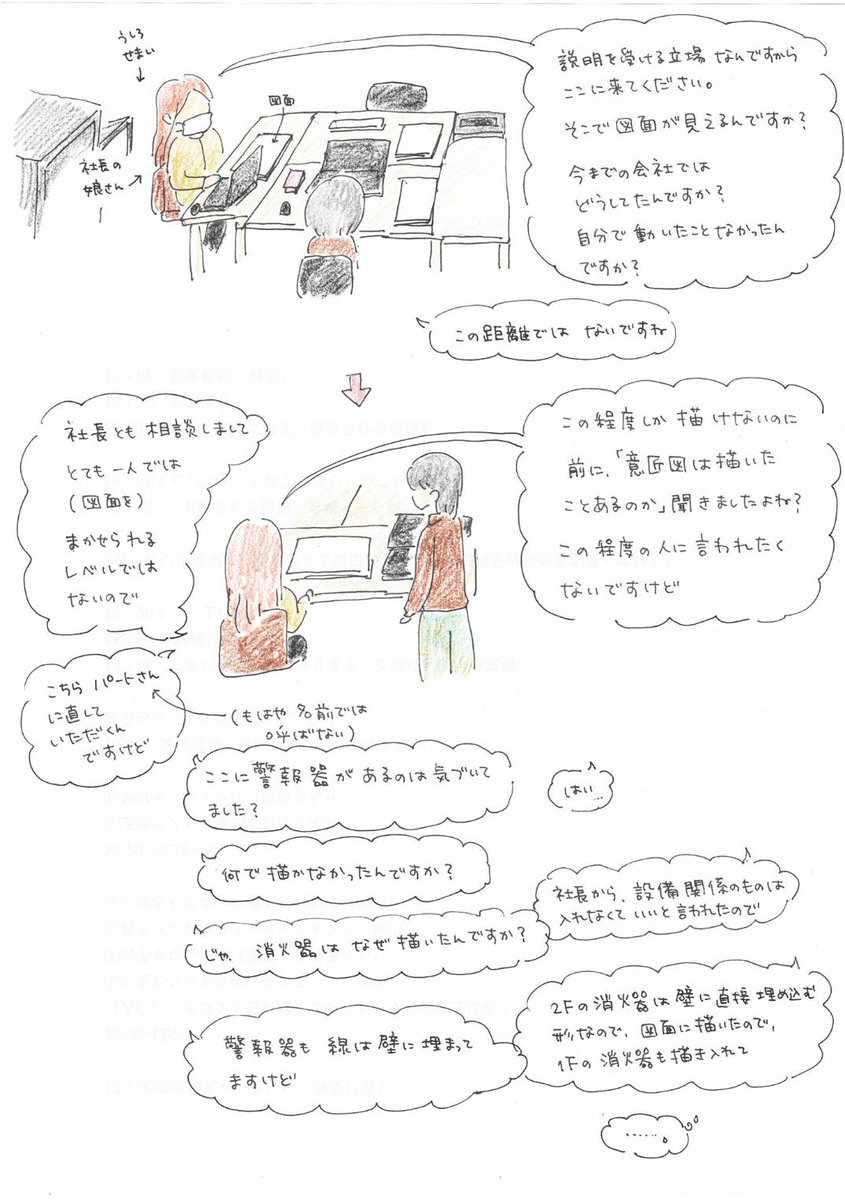 うしろ
せまい
図面
社長の
娘さん
説明を受ける立場なんですから
ここに来てください。
そこで図面が見えるんですか?
今までの会社では
どうしてたんですか?
自分で動いたことなかったん
ですか?
この距離では ないですね
社長とも相談しまして
とても一人では
(図面を)
まかせられる
レベルでは
ないので
この程度しか描けないのに
前に、「意匠図は描いた
ことあるのか」聞きましたよね?
この程度の人に言われたく
ないですけど
こちらパートさん
に直して
いただくん
ですけど
(もはや名前では
呼ばない)
ここに警報器があるのは気づいて
ました?
はい…
何で描かなかったんですか?
社長から、設備関係のものは
入れなくていいと言われたので
じゃ、消火器はなぜ描いたんですか?
2Fの消火器は壁に直接埋め込む
形なので、図面に描いたので、
1Fの消火器も描き入れて
警報器も線は壁に埋まって
ますけど
……。